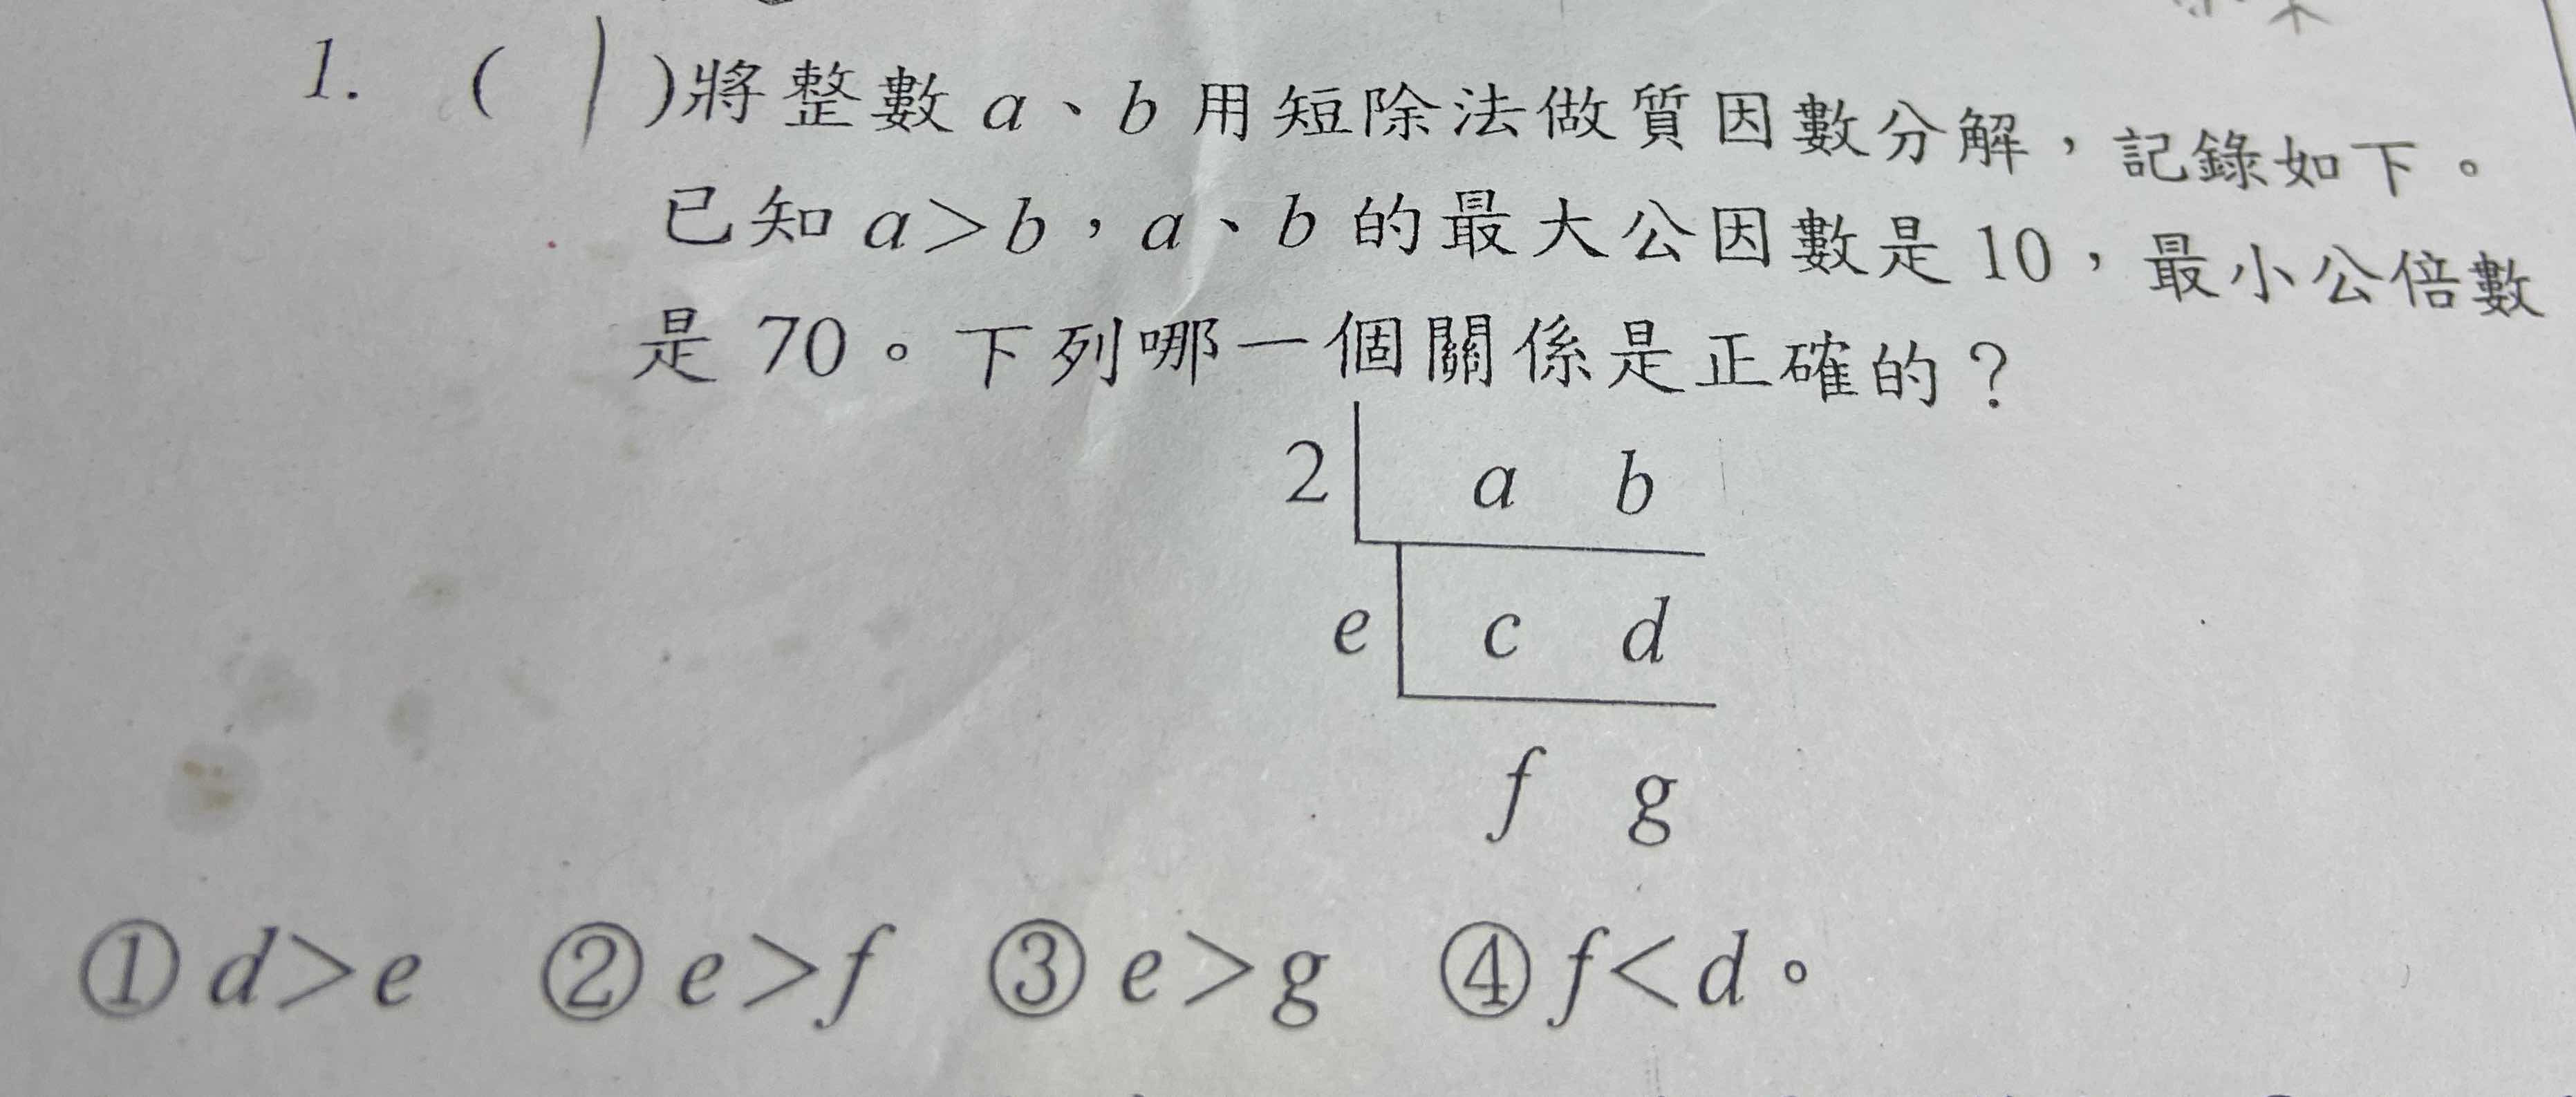 1. ( 1 )將整數 a、b 用短除法做質因數分解，記錄如下。
已知 a＞b，a、b 的最大公因數是 10，最小公倍數
是 70。下列哪一個關係是正確的？
2 a b
e c d
f g
①d＞e ②e＞f ③e＞g ④f＜d。